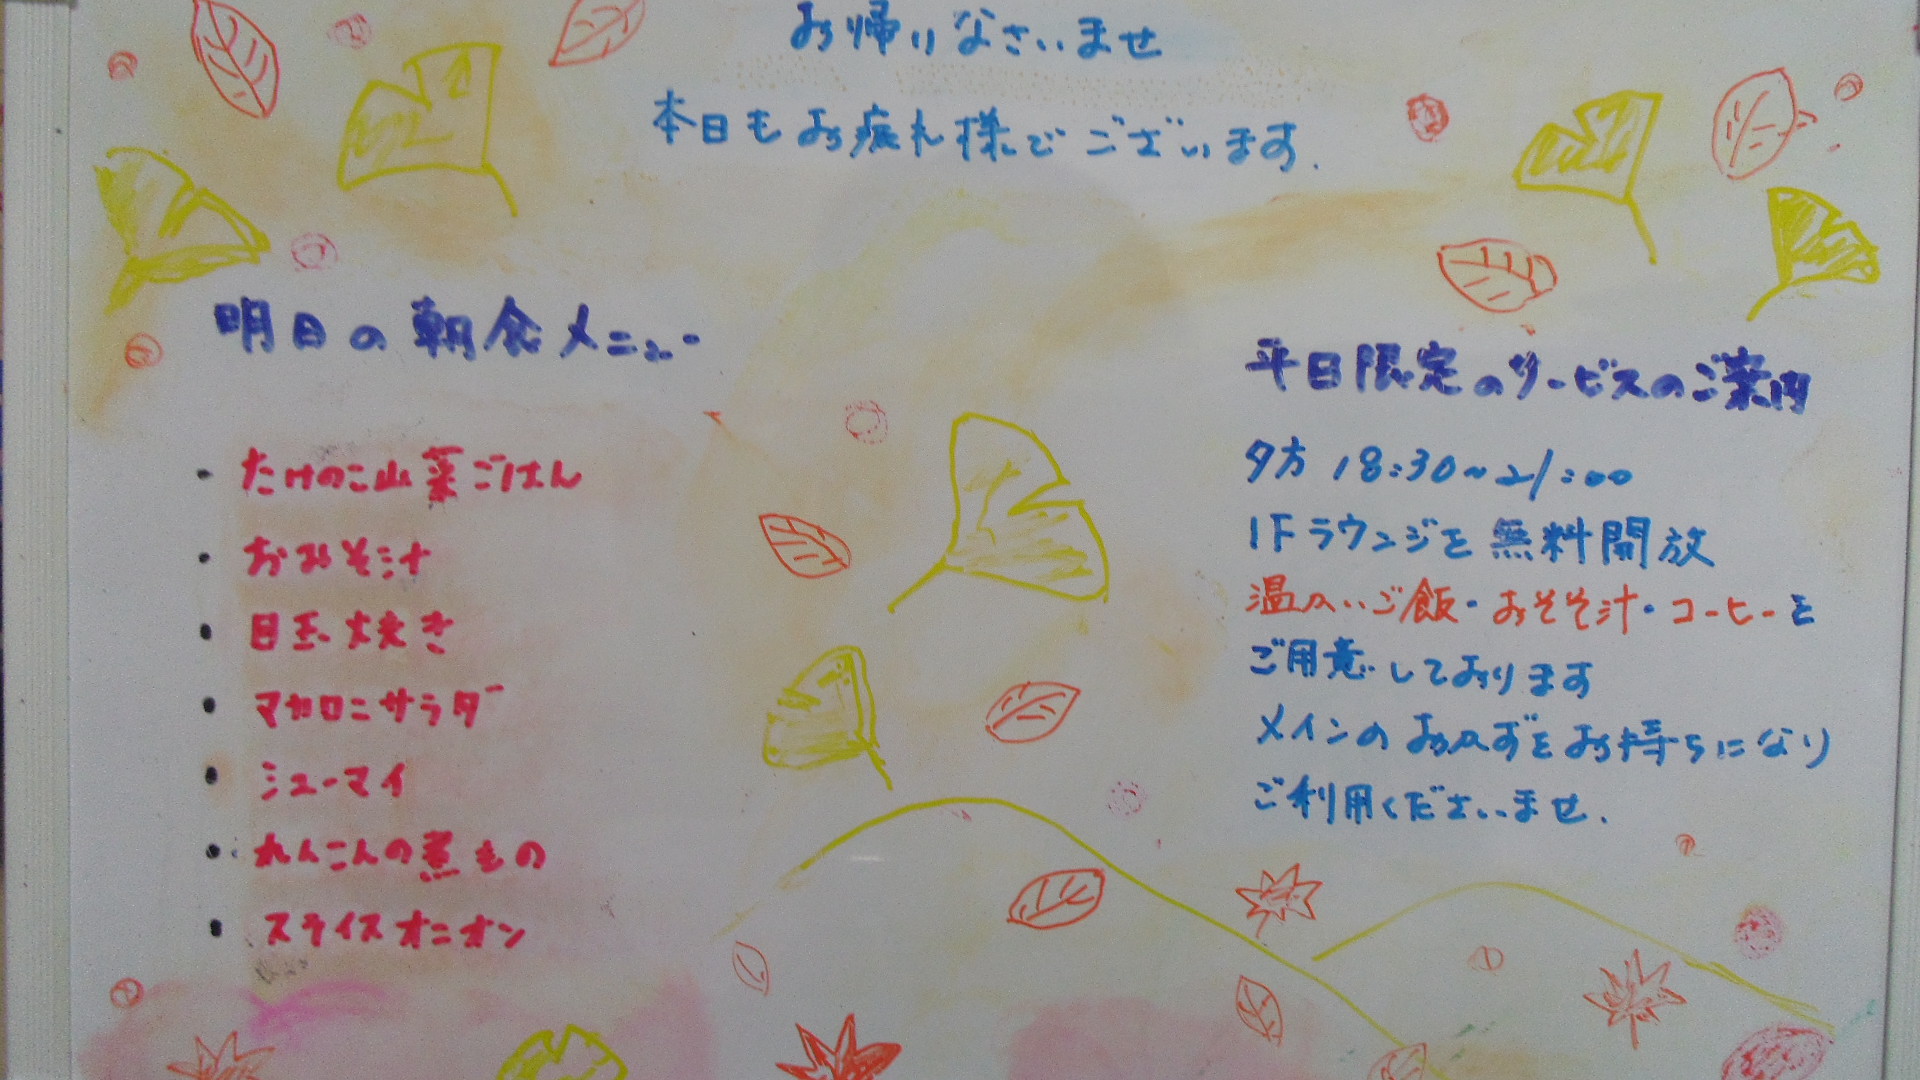 お帰りなさいませ
本日もお疲れ様でございます.
明日の朝食メニュー
・たけのこ山菜ごはん
・おみそ汁
・目玉焼き
・マカロニサラダ
・シューマイ
・れんこんの煮もの
・スライスオニオン
平日限定のサービスのご案内
夕方 18:30~21:00
1Fラウンジを無料開放
温かいご飯・おそそ汁・コーヒーを
ご用意しております
メインのおかずをお持ちになり
ご利用くださいませ.